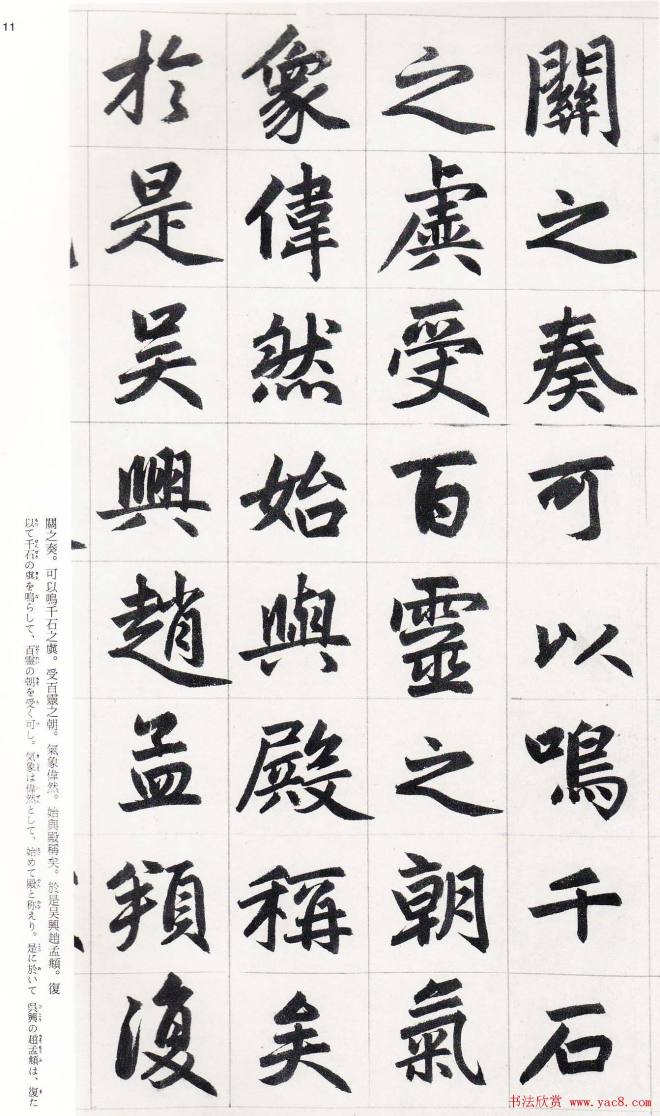 11
關之奏可以鳴千石
之虡受百靈之朝氣
象偉然始與殿稱矣
於是吴興趙孟頫復
關之奏。可以鳴千石之虡。受百靈之朝。氣象偉然。始與殿稱矣。於是吴興趙孟頫。復
以て千石の虡を鳴らして、百霊の朝を受く可し。気象は偉然として、始めて殿と称えり。是に於いて呉興の趙孟頫は、復た
书法欣赏 www.yac8.com